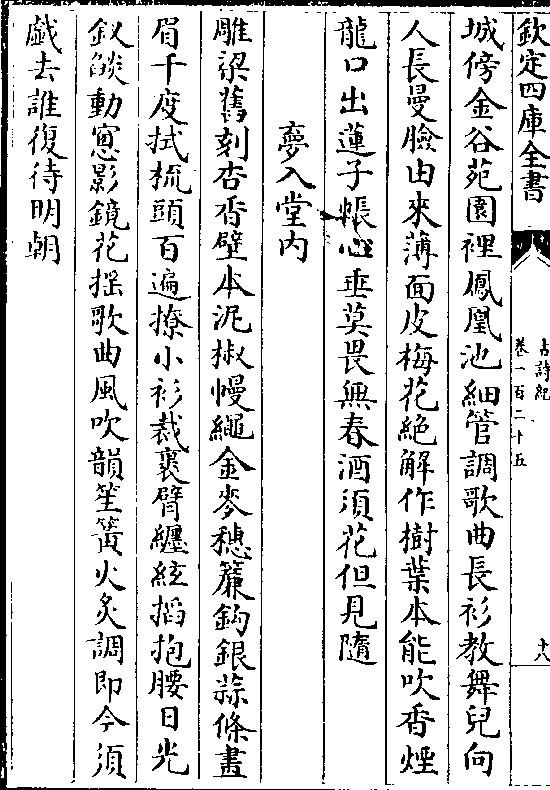 欽定四庫全書
古詩紀
卷一百二十五
十八
城傍金谷苑園裡鳳凰池細管調歌曲長衫教舞兒向
人長曼臉由來薄面皮梅花絶解作樹葉本能吹香煙
龍口出蓮子帳心垂莫畏無春酒須花但見隨
夢入堂内
雕梁舊刻杏香壁本泥椒幔繩金麥穗簾鈎銀蒜條畫
眉千度拭梳頭百遍撩小衫裁裹臂纏絃搯抱腰日光
釵燄動窻影鏡花揺歌曲風吹韻笙簧火炙調即今須
戲去誰復待明朝